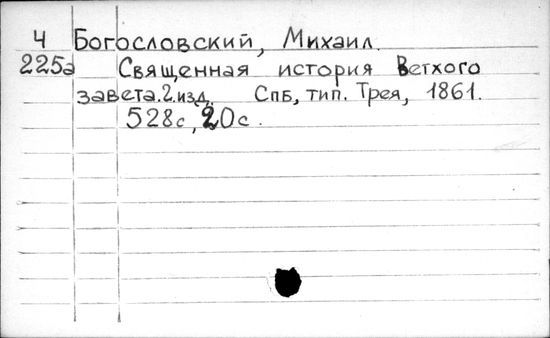 Ч Богословский, Михаил.
225а Священная история Ветхого
завета. 2. изд. СПБ, тип. Трея, 1861.
528с, 20с.